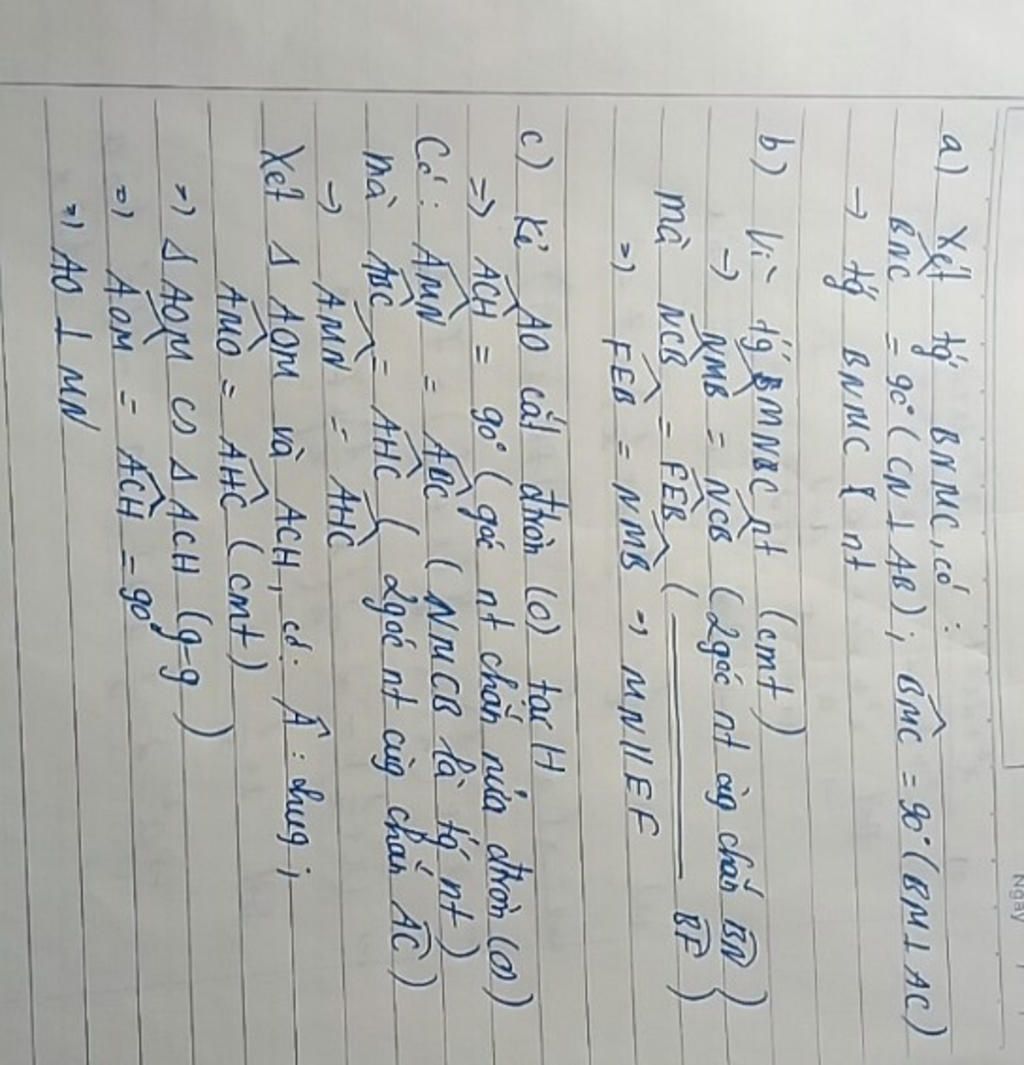 Ngày
a) Xét tứ BNMC, có:
BNC = 90° (CN ⊥ AB); BMC = 90° (BM ⊥ AC)
→ tứ BNMC nt
b) Vì tứ MNBC nt (cmt)
→ NMB = NCB (2 góc nt cùng chắn BN)
mà NCB = FEB ( ——— BF ) }
=> FEB = NMB → MN // EF
c) Kẻ AO cắt đtròn (O) tại H
=> ACH = 90° (góc nt chắn nửa đtròn (O))
Có: AMN = ABC (NMCB là tứ nt)
mà ABC = AHC (2 góc nt cùng chắn AC)
→ AMN = AHC
Xét Δ AOM và ACH, có: Â: chug;
AMO = AHC (cmt)
=> Δ AOM ∽ Δ ACH (g-g)
=> AOM = ACH = 90°
=> AO ⊥ MN